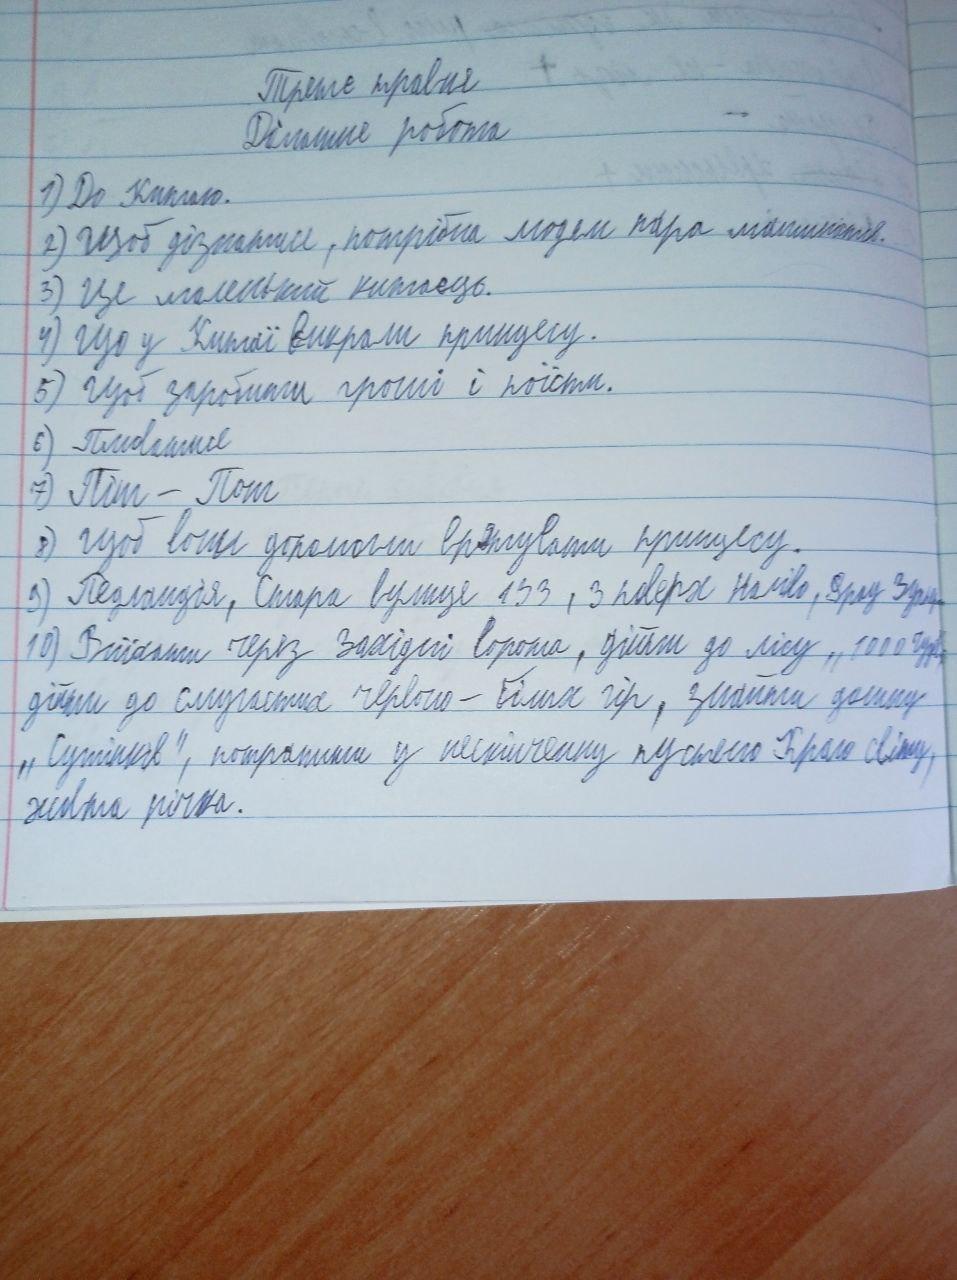 Третє травня
Домашня робота
1) До Китаю.
2) Щоб дізнатися, потрібна людям пара
3) Це маленький китаєць.
4) Що у Китаї викрали принцесу.
5) Щоб заробити гроші і поїсти.
6) Плюватися
7) Пінг – Понг
8) Щоб вони допомогли врятувати принцесу.
9) Стара вулиця 133, 3 поверх наліво,
10) Виїхати через Західні ворота, дійти до лісу „1000
дійти до смугастих червоно – білих гір, знайти долину
„Сутінків", потрапити у нескінченну Краю світу,
жовта річка.